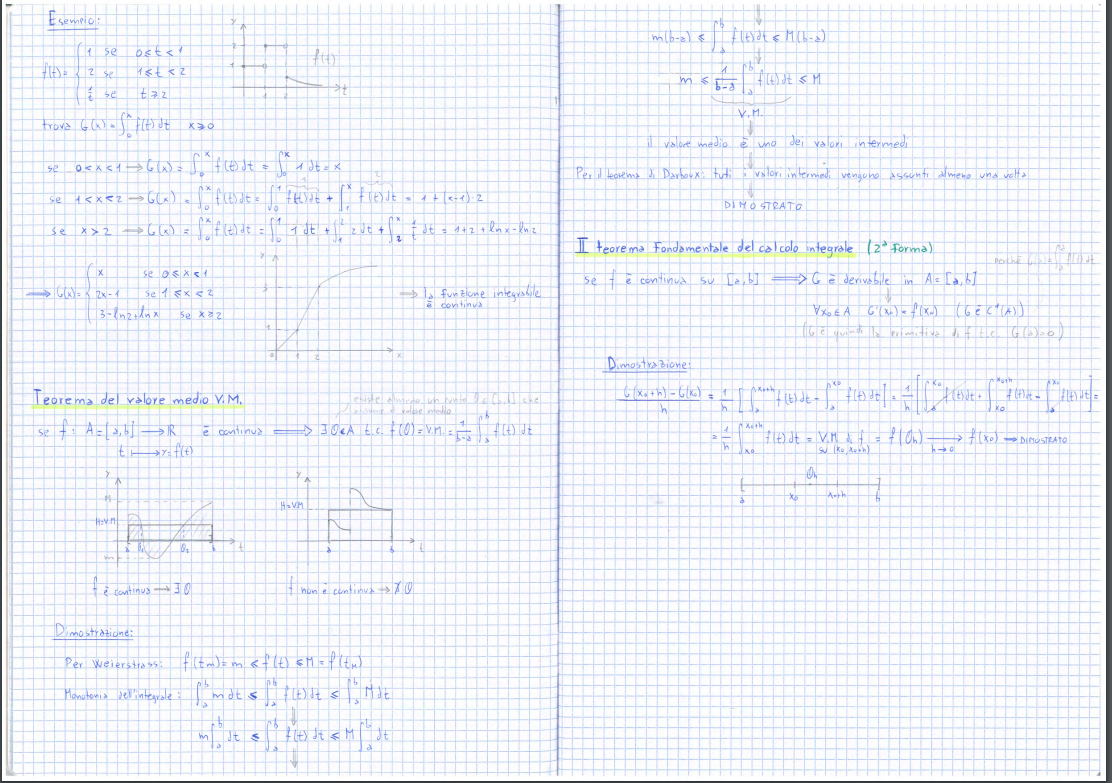 Esempio:
f(t) = { 1 se 0 ≤ t < 1
2 se 1 ≤ t < 2
1/t se t ≥ 2
y
2
1
f(t)
1 2 t
trova G(x) = ∫₀ˣ f(t) dt x ≥ 0
se 0 < x < 1 → G(x) = ∫₀ˣ f(t) dt = ∫₀ˣ 1 dt = x
se 1 < x ≤ 2 → G(x) = ∫₀ˣ f(t) dt = ∫₀¹ f(t) dt + ∫₁ˣ f(t) dt = 1 + (x-1)·2
se x > 2 → G(x) = ∫₀ˣ f(t) dt = ∫₀¹ 1 dt + ∫₁² 2 dt + ∫₂ˣ 1/t dt = 1 + 2 + ln x - ln 2
⟹ G(x) = { x se 0 ≤ x ≤ 1
2x-1 se 1 ≤ x ≤ 2
3 - ln2 + ln x se x ≥ 2
y
3
1
0 1 2 x
⟹ la funzione integrabile
è continua
Teorema del valore medio V.M.
esiste almeno un punto θ ∈ [a,b] che
se f: A = [a,b] → R è continua ⟹ ∃ θ ∈ A t.c. f(θ) = V.M. = 1/(b-a) ∫ₐᵇ f(t) dt
t ↦ y = f(t)
y
M
H=V.M
m
a θ₁ θ₂ b t
y
H=V.M
a b t
f è continua → ∃ θ
f non è continua → ∄ θ
Dimostrazione:
Per Weierstrass: f(tm) = m ≤ f(t) ≤ M = f(tM)
Monotonia dell'integrale: ∫ₐᵇ m dt ≤ ∫ₐᵇ f(t) dt ≤ ∫ₐᵇ M dt
m ∫ₐᵇ dt ≤ ∫ₐᵇ f(t) dt ≤ M ∫ₐᵇ dt
m(b-a) ≤ ∫ₐᵇ f(t) dt ≤ M(b-a)
m ≤ 1/(b-a) ∫ₐᵇ f(t) dt ≤ M
V.M.
il valore medio è uno dei valori intermedi
Per il teorema di Darboux: tutti i valori intermedi vengono assunti almeno una volta
DIMOSTRATO
II teorema Fondamentale del calcolo integrale (2ª forma)
se f è continua su [a,b] ⟹ G è derivabile in A = [a,b]
∀x₀ ∈ A G'(x₀) = f(x₀) (G è C¹(A))
(G è quindi la primitiva di f t.c. G(a)=0)
perché G(a) = ∫ₐᵃ f(t) dt
Dimostrazione:
(G(x₀+h) - G(x₀))/h = 1/h [∫ₐˣ⁰⁺ʰ f(t) dt - ∫ₐˣ⁰ f(t) dt] = 1/h [∫ₐˣ⁰ f(t) dt + ∫ₓ₀ˣ⁰⁺ʰ f(t) dt - ∫ₐˣ⁰ f(t) dt] =
= 1/h ∫ₓ₀ˣ⁰⁺ʰ f(t) dt = V.M. di f su (x₀, x₀+h) = f(θh) → h→0 f(x₀) ⟹ DIMOSTRATO
θh
a x₀ x₀+h b